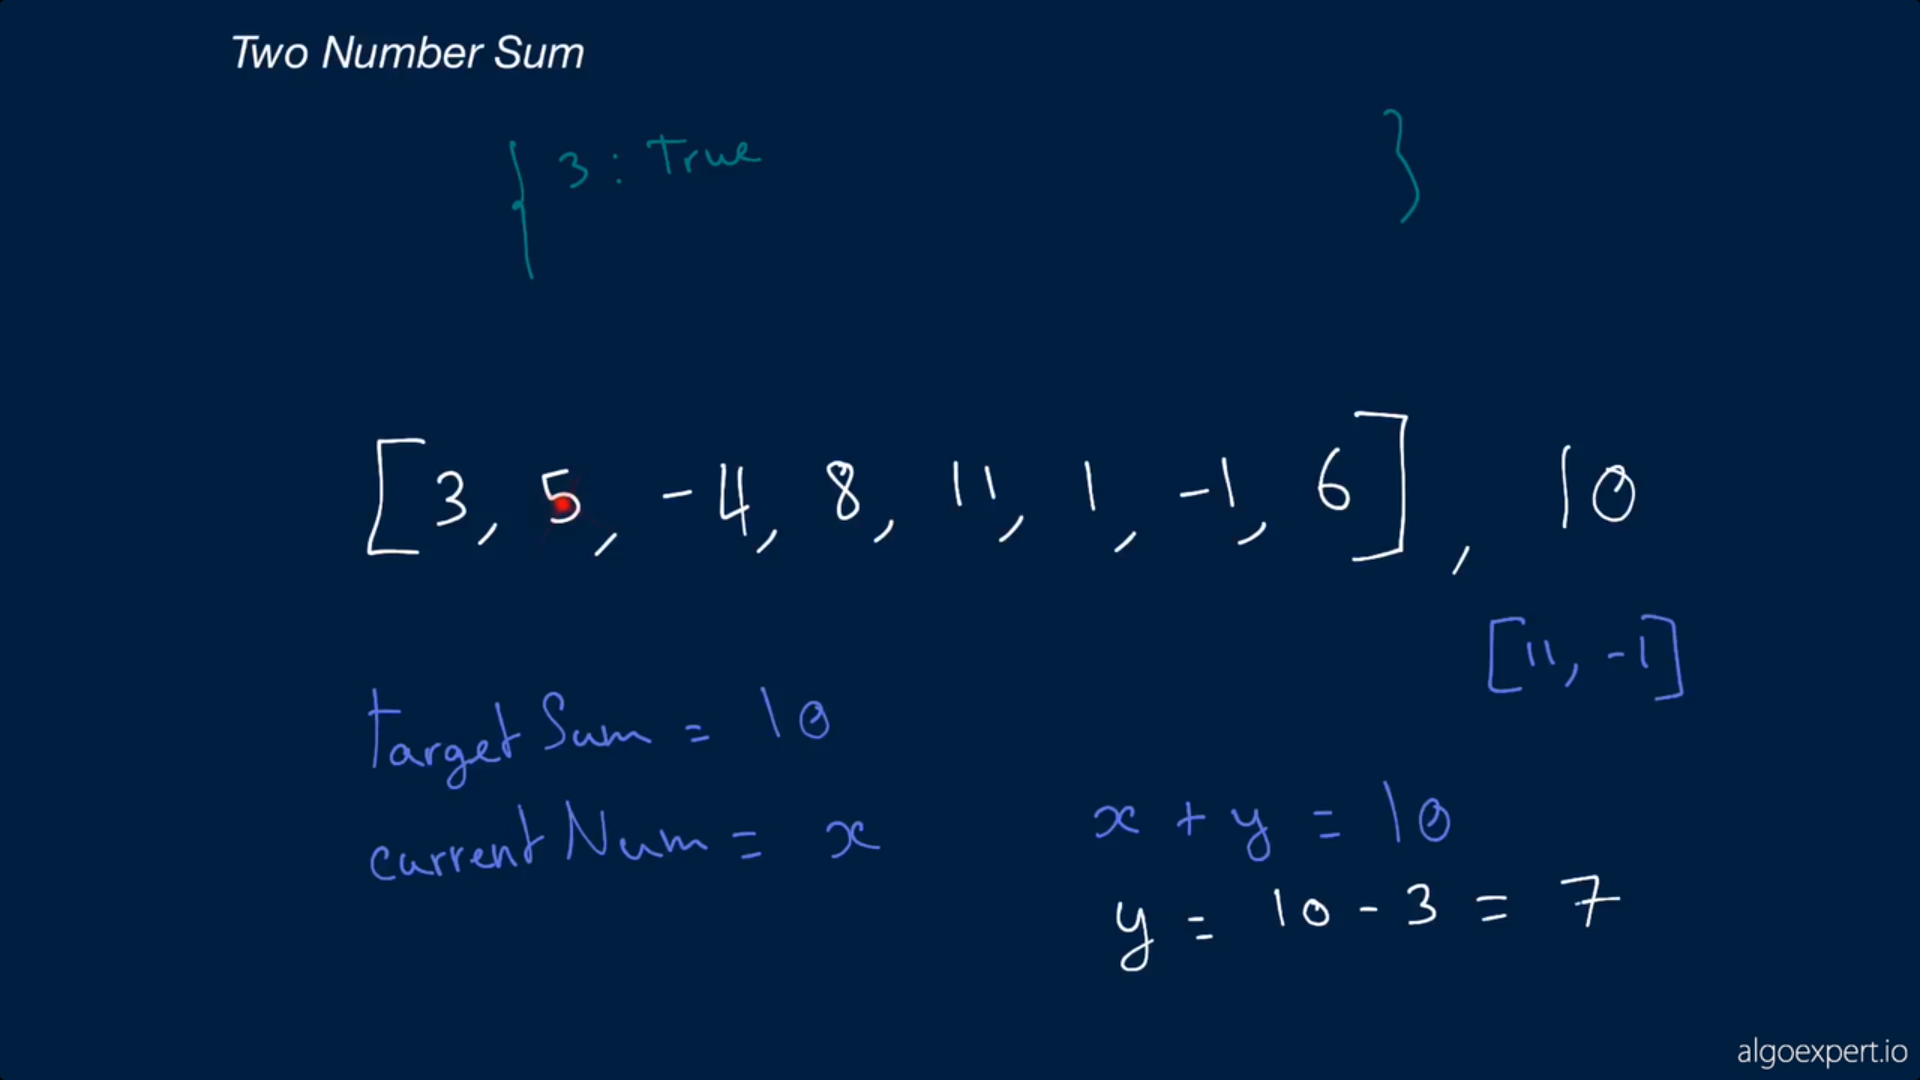 Two Number Sum
{ 3 : True }
[3, 5, -4, 8, 11, 1, -1, 6], 10
[11, -1]
targetSum = 10
currentNum = x
x + y = 10
y = 10 - 3 = 7
algoexpert.io